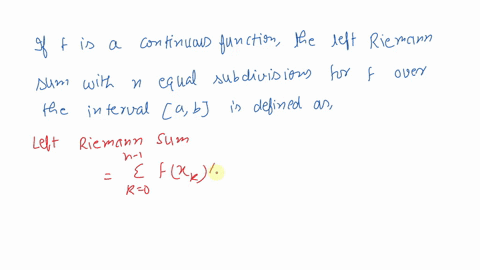 If f is a continuous function, the left Riemann
sum with n equal subdivisions for f over
the interval [a,b] is defined as,
Left Riemann Sum
n-1
= Σ f(x_k)
k=0